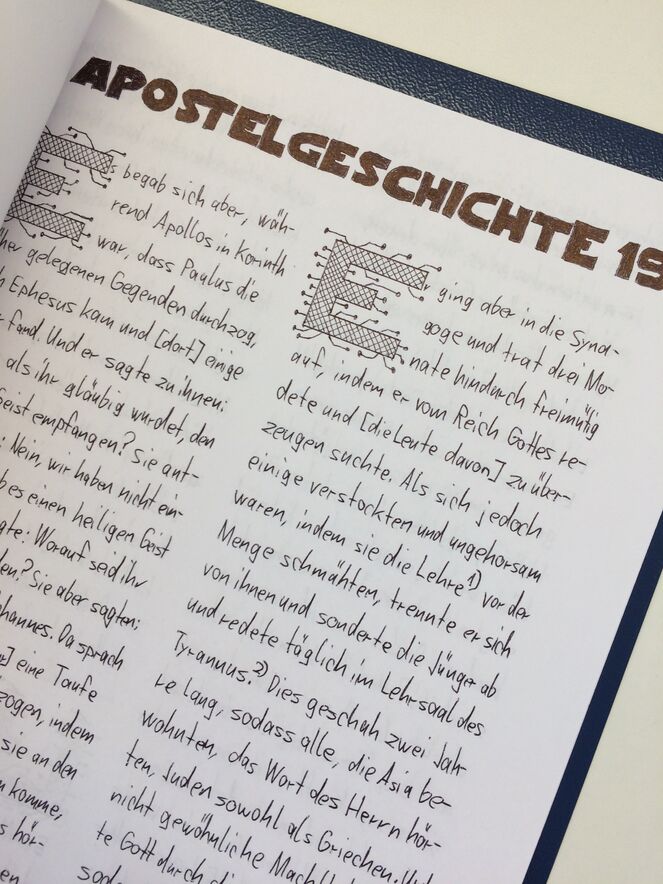 APOSTELGESCHICHTE 19
Es begab sich aber, wäh-
rend Apollos in Korinth
war, dass Paulus die
gelegenen Gegenden durchzog,
Ephesus kam und [dort] einige
fand. Und er sagte zu ihnen:
als ihr gläubig wurdet, den
empfangen? Sie ant-
Nein, wir haben nicht ein-
es einen heiligen Geist
Worauf seid ihr
Sie aber sagten:
Da sprach
eine Taufe
indem
sie an den
komme,
hör-
Er ging aber in die Syna-
goge und trat drei Mo-
nate hindurch freimütig
auf, indem er vom Reich Gottes re-
dete und [die Leute davon] zu über-
zeugen suchte. Als sich jedoch
einige verstockten und ungehorsam
waren, indem sie die Lehre 1) vor der
Menge schmähten, trennte er sich
von ihnen und sonderte die Jünger ab
und redete täglich im Lehrsaal des
Tyrannus. 2) Dies geschah zwei Jah-
re lang, sodass alle, die Asia be-
wohnten, das Wort des Herrn hör-
ten, Juden sowohl als Griechen. Und
nicht gewöhnliche
te Gott durch die